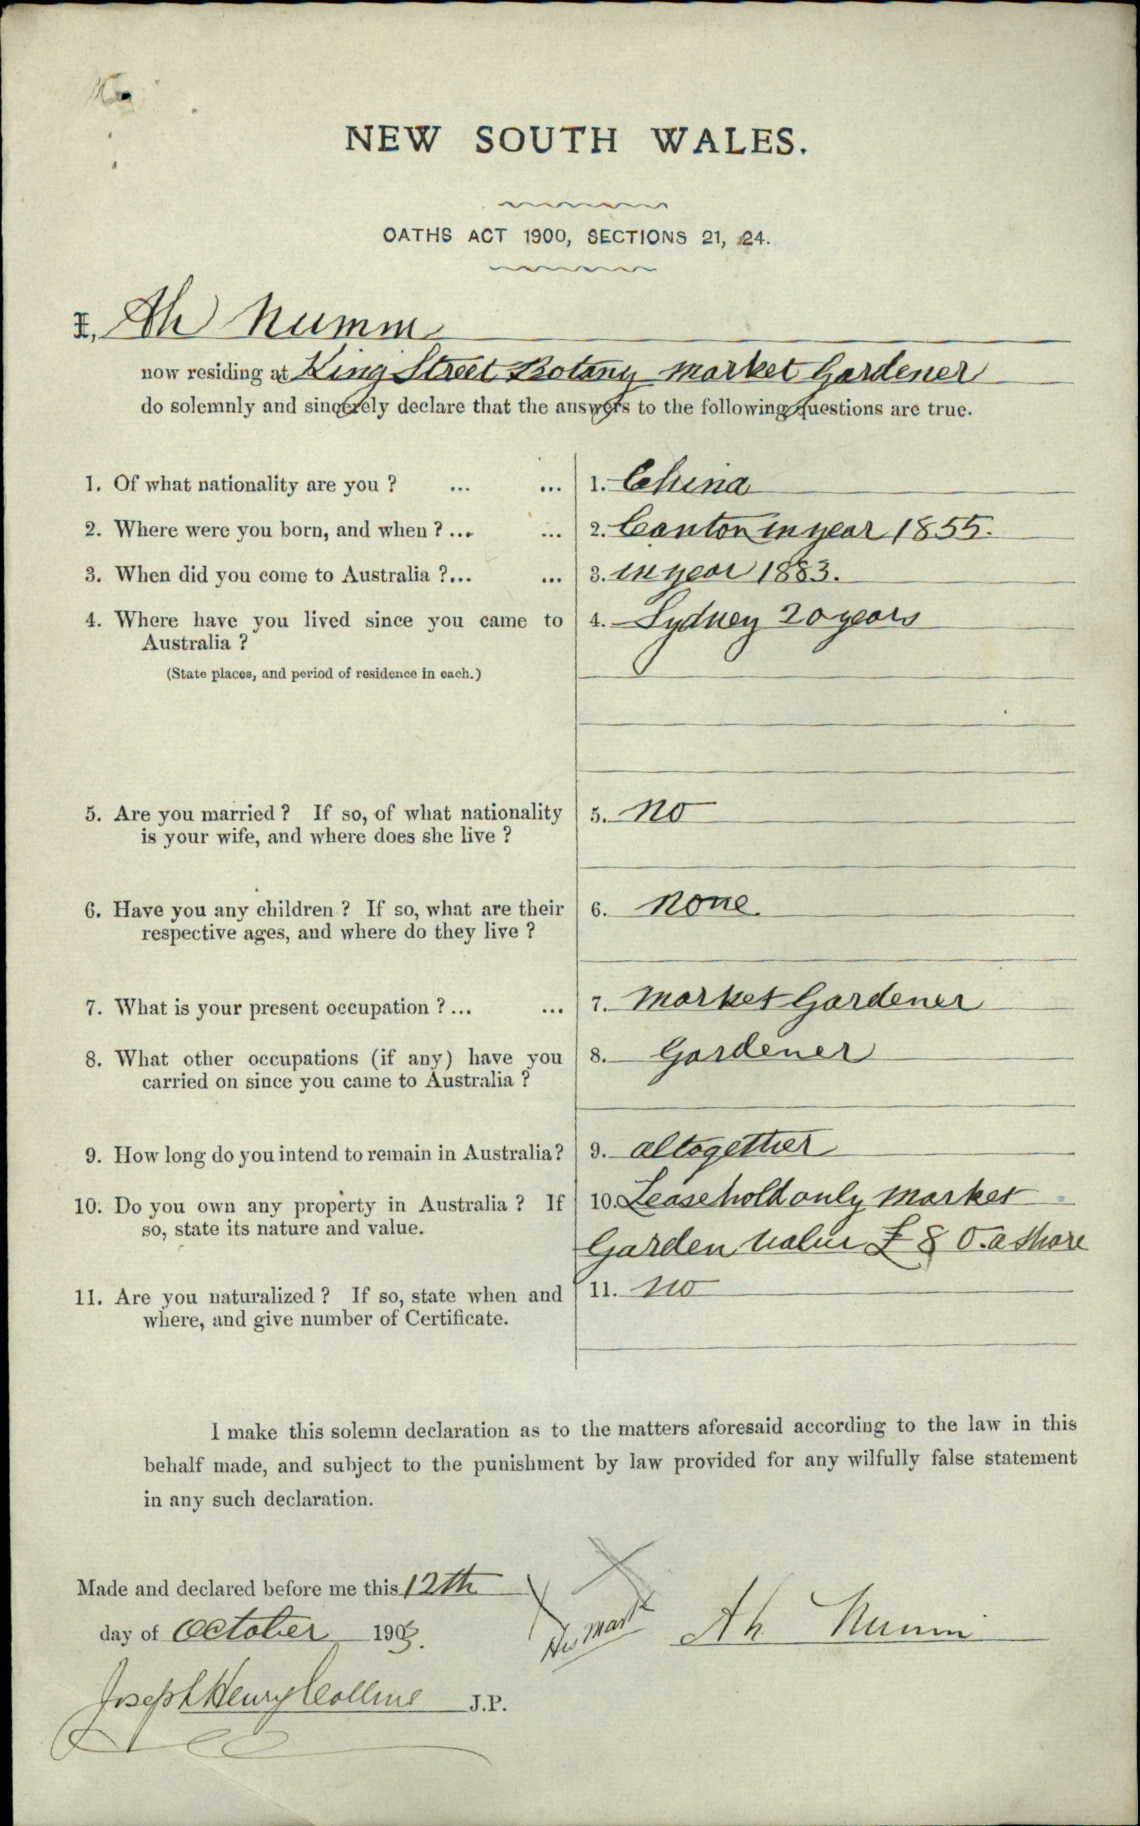 NEW SOUTH WALES.
OATHS ACT 1900, SECTIONS 21, 24.
I, Ah Numm
now residing at King Street Botany Market Gardener
do solemnly and sincerely declare that the answers to the following questions are true.
1. Of what nationality are you ? ... ... 1. China
2. Where were you born, and when ? ... ... 2. Canton in year 1855.
3. When did you come to Australia ?... ... 3. in year 1883.
4. Where have you lived since you came to 4. Sydney 20 years
Australia ?
(State places, and period of residence in each.)
5. Are you married ? If so, of what nationality 5. No
is your wife, and where does she live ?
6. Have you any children ? If so, what are their 6. None.
respective ages, and where do they live ?
7. What is your present occupation ? ... ... 7. Market Gardener
8. What other occupations (if any) have you 8. Gardener
carried on since you came to Australia ?
9. How long do you intend to remain in Australia? 9. altogether
10. Do you own any property in Australia ? If 10. Leasehold only Market
so, state its nature and value. Garden value £80. a share
11. Are you naturalized ? If so, state when and 11. no
where, and give number of Certificate.
I make this solemn declaration as to the matters aforesaid according to the law in this
behalf made, and subject to the punishment by law provided for any wilfully false statement
in any such declaration.
Made and declared before me this 12th
day of October 1903. His Mark X Ah Numm
Joseph Henry Collins J.P.